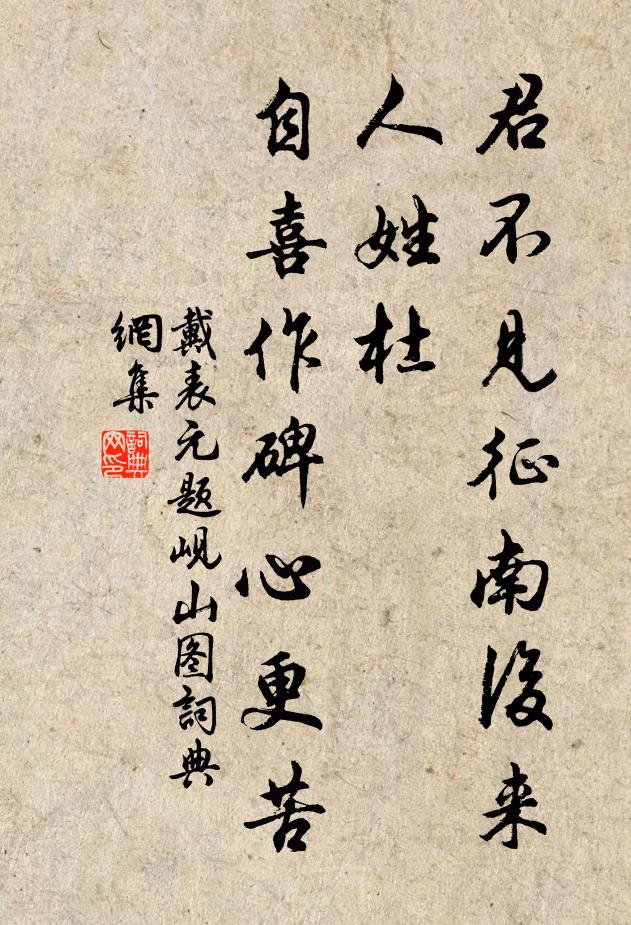 君不见征南後来
人姓杜
自喜作碑心更苦
戴表元题岘山图詞典
網集
詞典网印